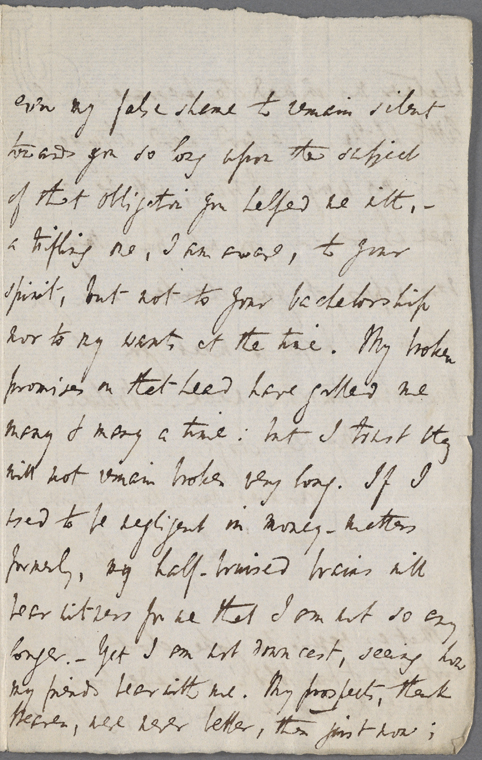 even my false shame to remain silent
towards you so long upon the subject
of that obligation you helped me with, –
a trifling one, I am aware, to your
spirit, but not to your bachelorship
nor to my wants at the time. My broken
promises on that head have galled me
many & many a time: but I trust they
will not remain broken very long. If I
used to be negligent in money-matters
formerly, my half-bruised brains will
bear witness for me that I am not so any
longer. – Yet I am not downcast, seeing how
my friends bear with me. My prospects, thank
Heaven, were never better, than just now;